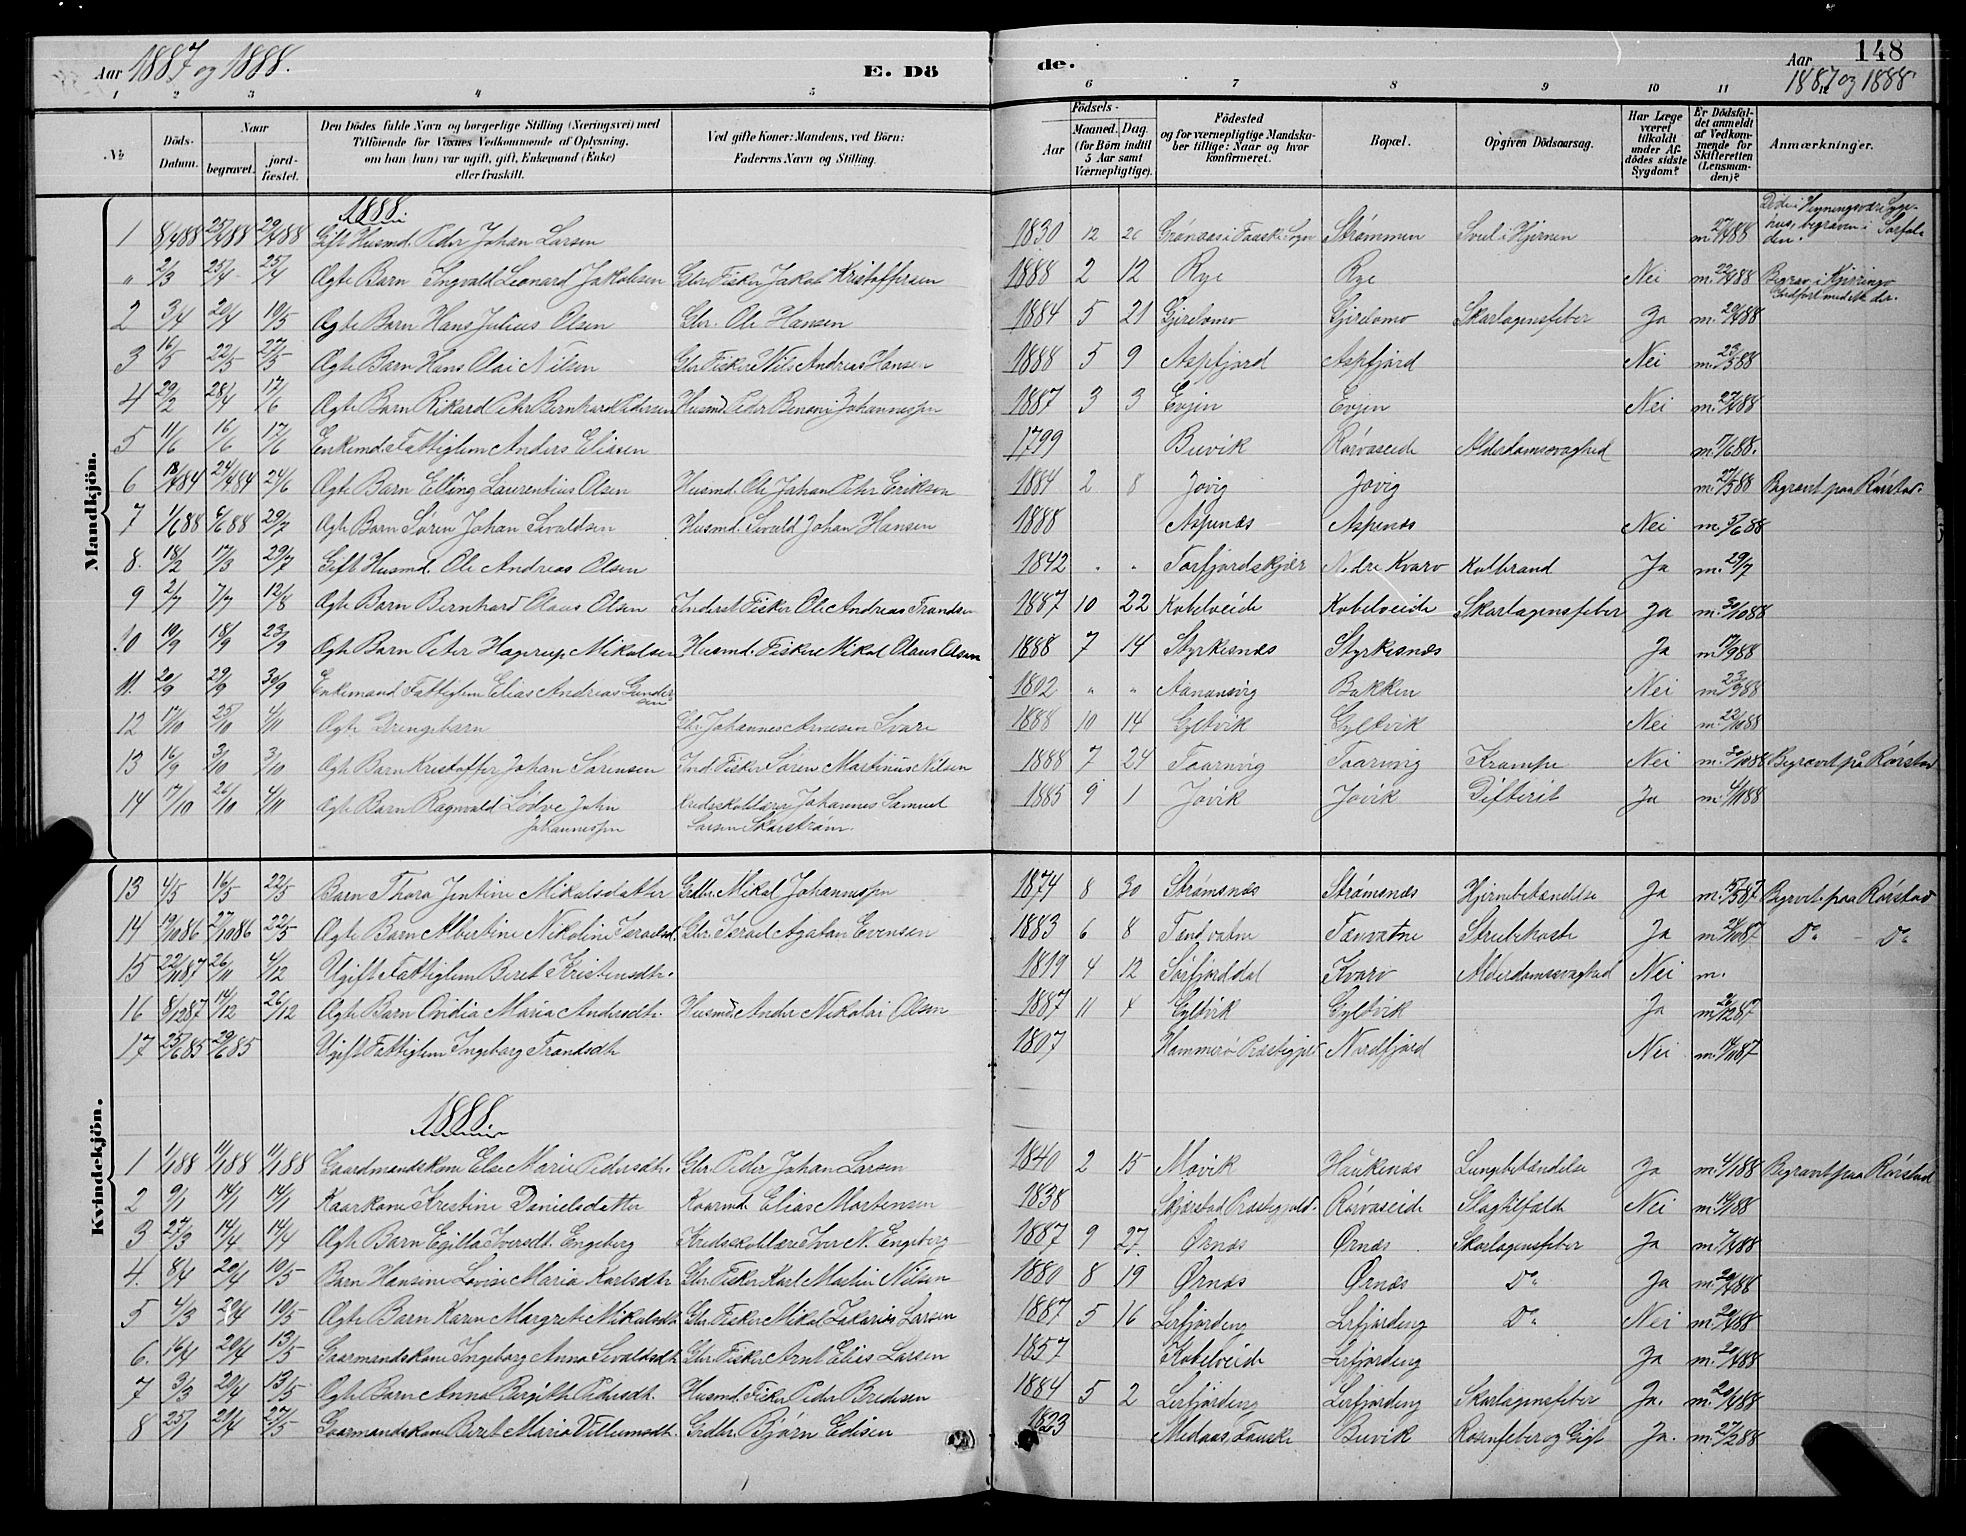 Aar 1887 og 1888. E. Dö de. Aar 1887 og 1888 148
1 2 3 4 5 6 7 8 9 10 11 12
No Döds-Datum. Naar begravet. jordfæstet. Den Dödes fulde Navn og borgerlige Stilling (Næringsvei) med Tilföiende for Voxnes Vedkommende af Oplysning, om han (hun) var ugift, gift, Enkemand (Enke) eller fraskilt. Ved gifte Koner: Mandens, ved Börn: Faderens Navn og Stilling. Födsels- Aar Maaned. Dag. (for Börn indtil 5 Aar samt Værnepligtige). Födested og for værnepligtige Mandskaber tillige: Naar og hvor konfirmeret. Bopæl. Opgiven Dödsaarsag. Har Læge været tilkaldt under Afdödes sidste Sygdom? Er Dödsfaldet anmeldt af Vedkommende for Skifteretten (Lensmanden)? Anmærkninger.
Mandkjön.
1888
1 8/4 88 25/4 88 29/4 88 Gift Husmd. Peder Johan Larsen 1830 12 26 Grønaas i Fauske Sogn Strømmen Svul i Hjernen m. 27/4 88
" 2/3 25/4 25/4 Ægte Barn Ingvald Leonard Jakobsen Gbr. Fisker Jakob Kristoffersen 1888 2 12 Rye Rye Nei m. 22/4 88 Begrav. i Kjerringø
2 3/4 20/4 10/5 Ægte Barn Hans Julius Olsen Gbr. Ole Hansen 1884 5 21 Gjerdomo Gjerdomo Skarlagensfeber Ja m. 20/4 88
3 16/5 22/5 27/5 Ægte Barn Hans Olai Nilsen Gbr. Fisker Nils Andreas Hansen 1888 5 9 Aspfjord Aspfjord Nei m. 23/5 88
4 29/2 28/4 17/6 Ægte Barn Rikard Peter Bernhard Pedersen Husmd. Peder Benoni Johannessen 1887 3 3 Evjen Evjen Nei m. 27/4 88
5 11/6 16/6 17/6 Enkemd. Fattiglem Anders Eliasen 1799 Buvik Rørvaseide Alderdomssvaghed m. 17/6 88.
6 24/6 Ægte Barn Elling Laurentius Olsen Husmd. Ole Johan Peter Erikson 1884 2 8 Jovig Jovig m. 27/5 88 Begravet paa Rørstad.
7 1/6 88 6/6 88 29/7 Ægte Barn Søren Johan Sivaldsen Husmd. Sivald Johan Hansen 1888 Aspenæs Aspenæs Nei m. 5/6 88
8. 18/2 17/3 29/7 Gift Husmd. Ole Andreas Olsen 1842 " " Torfjordskjær Nedre Kvarv Kolbrand Ja m. 29/7
9 2/7 7/7 12/8 Ægte Barn Bernhard Olaus Olsen Inderst Fisker Ole Andreas Trondsen 1887 10 22 Kobelveide Kobelveide Skarlagensfeber Ja m. 30/10 88
10 10/9 18/9 23/9 Ægte Barn Peter Hagerup Mikalsen Husmd. Fisker Mikal Olaus Olsen 1888 7 14 Styrkesnæs Styrkesnæs Ja m. 17/9 88
11. 20/9 29/9 30/9 Enkemand Fattiglem Elias Andreas Gundersen 1802 " " Aanansvig Bakken Nei m. 23/9 88
12 17/10 25/10 4/11 Ægte Drengebarn Gbr. Johannes Arnesen Svare 1888 10 14 Gyltvik Gyltvik Nei m. 22/10 88
13 16/9 3/10 3/10 Ægte Barn Kristoffer Johan Sørensen Ind. Fisker Søren Martinus Nilsen 1888 7 24 Taarnvig Taarnvig Krampe Nei m. 30/10 88 Begravet på Rørstad
14 17/10 26/10 4/11 Ægte Barn Ragnvald Lodve John Johannessen Kredsskollærer Johannes Samuel Larsen Skarstrøm. 1885 9 1 Jovik Jovik Difterit Ja m. 4/11 88
Kvindekjön.
13 4/5 16/5 22/5 Barn Thora Jentine Mikalsdatter Grdbr. Mikal Johannessen 1874 8 30 Strømsnæs Strømsnæs Hjernebetændelse Ja m. 15/5 87 Begravet paa Rørstad
14 19/10 86 27/10 86 22/5 Ægte Barn Albertine Nikoline Israelsd. Gbr. Israel Agatan Evensen 1883 6 8 Tendvatne Tenvatne Strubehoste Ja Do - Do
15 22/11 87 26/11 4/12 Ugift Fattiglem Beret Kristensdtr. 1819 4 12 Sørfjorddal Kvarv Alderdomssvaghed Nei m.
16 8/12 87 14/12 26/12 Ægte Barn Ovidia Maria Andersdtr. Husmd. Ander Nikolai Olsen 1887 11 4 Gyltvik Gyltvik Ja m. 26/12 87
17 25/6 85 29/6 85 Ugift Fattiglem Ingeborg Trondsdtr. 1807 Hammerø Præstegjeld Nordfjord Nei m. 14/11 87
1888.
1 1/1 88 11/1 88 11/1 88 Gaardmandskone Else Marie Pedersdtr. Gbr. Peder Johan Larsen 1840 2 15 Movik Haukenæs Lungebetændelse Ja m. 4/1 88 Begravet paa Rørstad
2 9/1 14/1 14/1 Kaarkone Kristine Danielsdatter Kaarmd. Elias Mortensen 1838 Skjærstad Præstegjeld. Rørvaseide Slagtilfælde Nei m. 14/1 88
3 27/3 14/4 14/4 Ægte Barn Egilla Iversdt. Engeberg Kredsskollærer Iver N. Engeberg 1887 9 27. Ørnæs Ørnæs Skarlagensfeber Ja m. 7/4 88
4. 8/4 20/4 10/5 Barn Hansine Lovise Maria Karlsdtr. Gbr. Fisker Karl Martin Nilsen 1880 8 19 Ørnæs Ørnæs Do Ja m. 20/4 88
5 4/3 20/4 10/5 Ægte Barn Karen Margrete Mikalsdt. Gbr. Fisker Mikal Zakarias Larsen 1887 5 16 Lerfjorden Lerfjorden Do Nei m. 20/4 88
6. 16/4 20/4 13/5 Gaarmandskone Ingeborg Anna Sivaldsdt. Gbr. Fisker Arnt Elias Larsen 1857 Kobelveide Lerfjorden Ja m. 20/4 88
7 3/3 20/4 13/5 Ægte Barn Anna Bergithe Pedersdt. Husmd. Fisker Peder Bredesen 1884 5 2 Lerfjorden Lerfjorden Skarlagensfeber Ja. m. 20/4 88
8 25/1 20/4 27/5 Gaarmandskone Beret Maria Villumsdt. Grdbr. Bjørn Edisen 1823 Medaas, Fauske Buvik Rosenfeber og Gigt Ja. m. 27/2 88